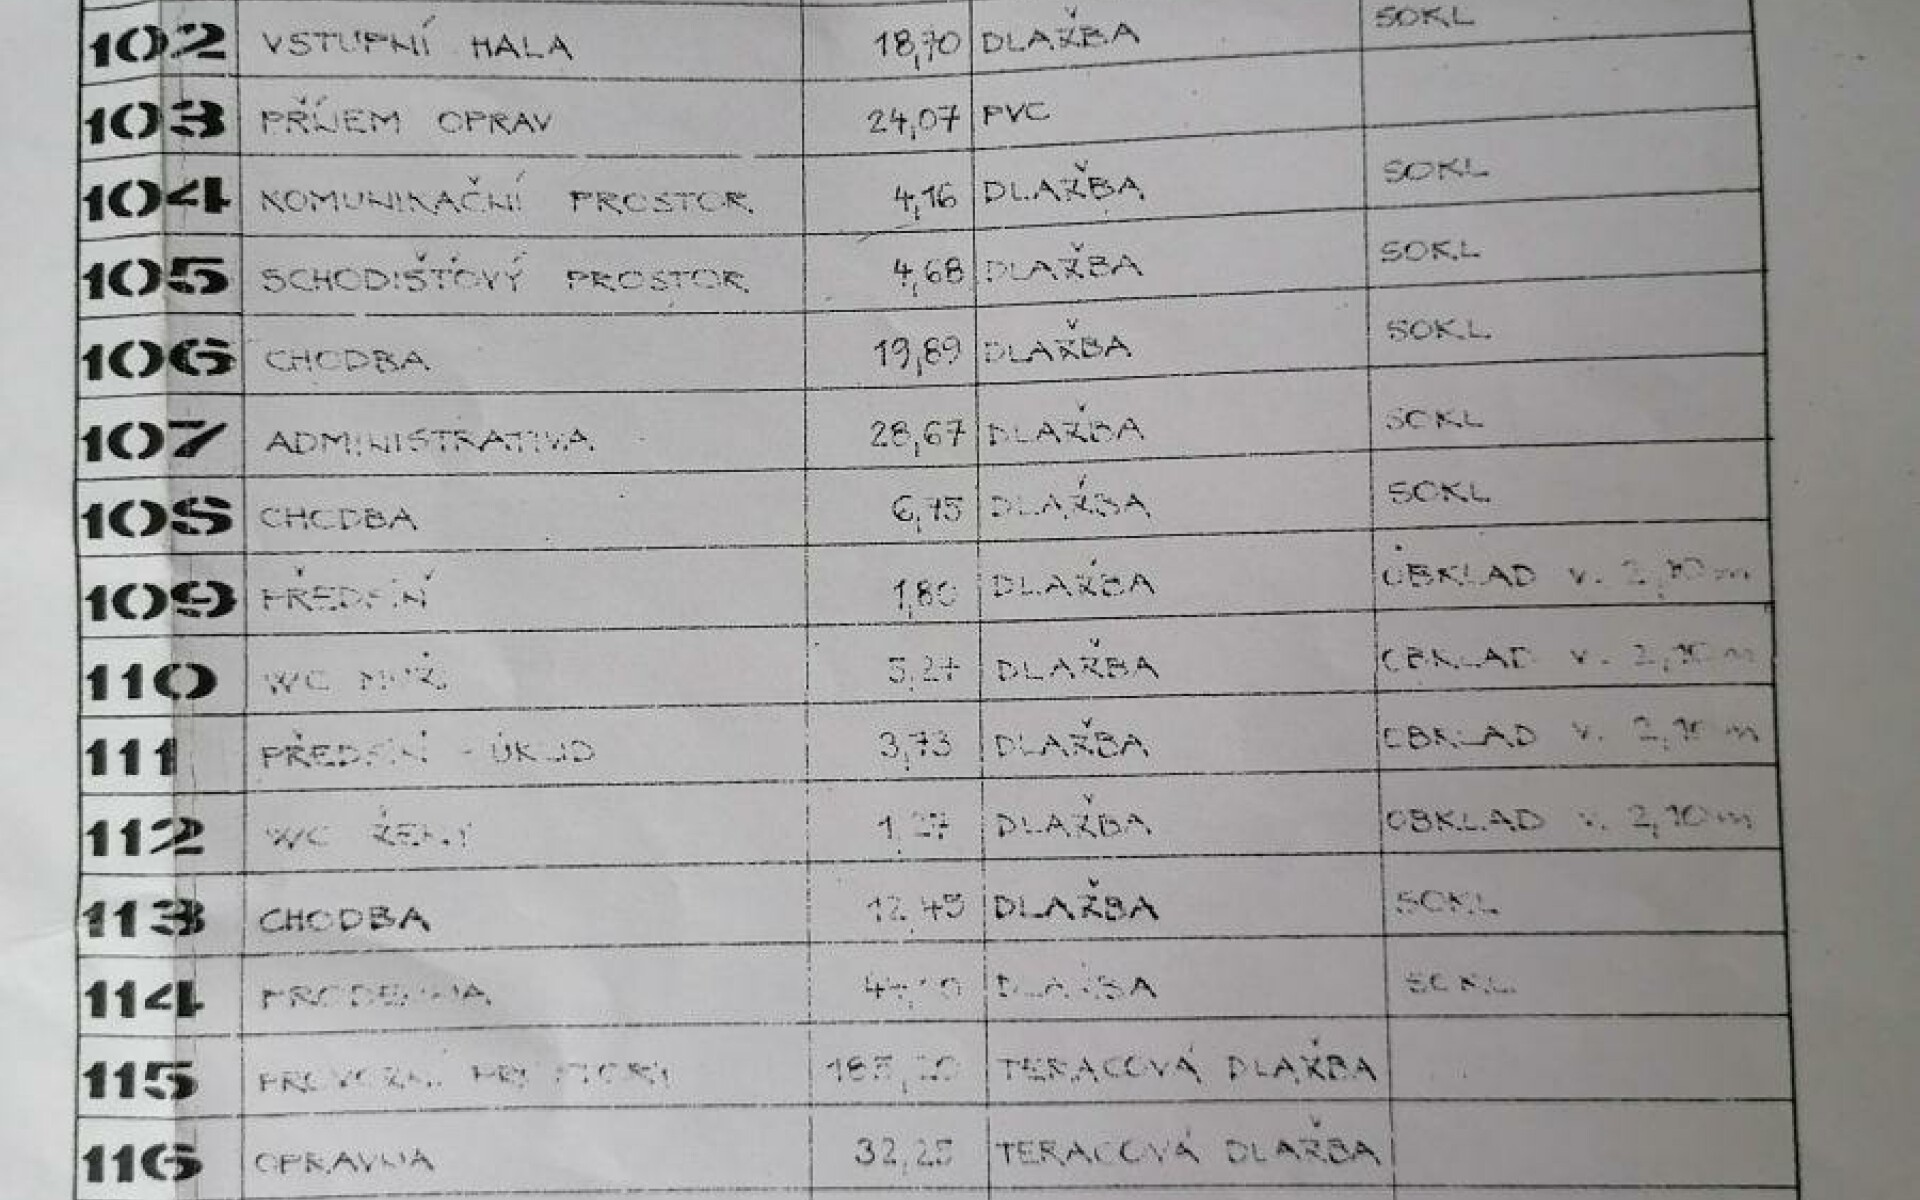 102 VSTUPNÍ HALA 18,70 DLAŽBA SOKL
103 PŘÍJEM OPRAV 24,07 PVC
104 KOMUNIKAČNÍ PROSTOR 4,16 DLAŽBA SOKL
105 SCHODIŠŤOVÝ PROSTOR 4,68 DLAŽBA SOKL
106 CHODBA 19,89 DLAŽBA SOKL
107 ADMINISTRATIVA 28,67 DLAŽBA SOKL
108 CHODBA 6,75 DLAŽBA SOKL
109 PŘEDSÍŇ 1,80 DLAŽBA OBKLAD v. 2,10 m
110 WC MUŽI 5,27 DLAŽBA OBKLAD v. 2,10 m
111 PŘEDSÍŇ - ÚKLID 3,73 DLAŽBA OBKLAD v. 2,10 m
112 WC ŽENY DLAŽBA OBKLAD v. 2,10 m
113 CHODBA 12,45 DLAŽBA SOKL
114 PRODEJNA DLAŽBA SOKL
115 PROVOZNÍ PROSTORY TERACOVÁ DLAŽBA
116 OPRAVNA 32,25 TERACOVÁ DLAŽBA